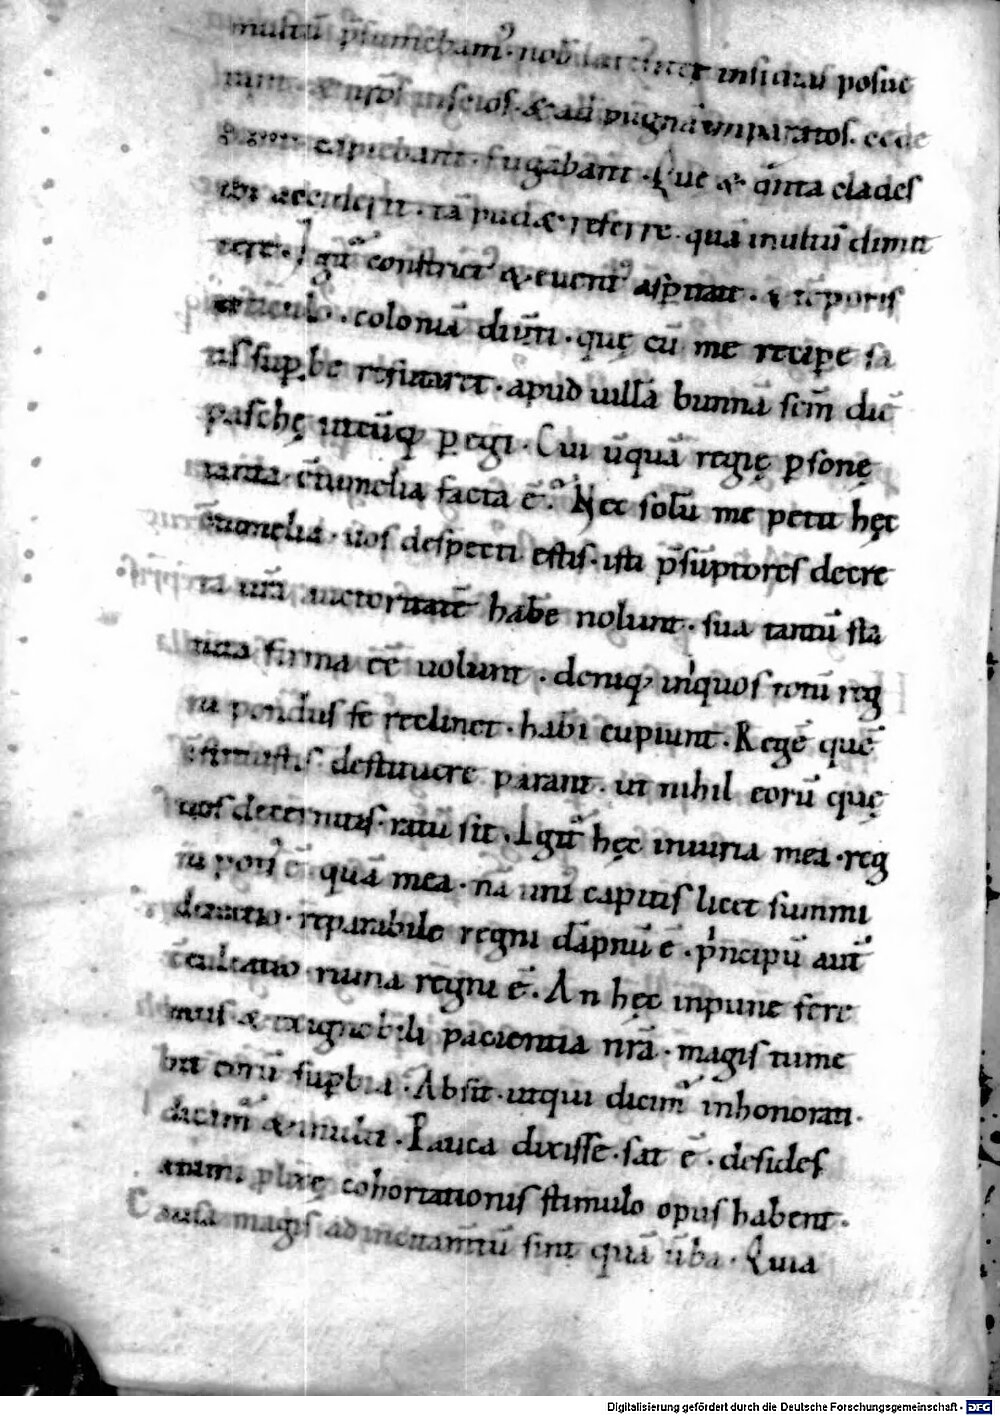 multū p̄sumebamꝰ · nob̄ latent᷑ insidias posue
runt · & n̄sol̄ inscios · & ad pugnā imparatos · cede
bant capiebant · fugabant · Que & q̄nta clades
ibi acciderit · tā pudꝫ referre · quā inultū dimit
tere · Igit᷑ constrictꝰ & euentꝰ asperitate · & tēporis
articulo · coloniā diu̅ti · quę cū me recip̲e sa
tis sup̲be refutaret · apud uillā bunnā sc̄m diē
paschę utcūq; p̲egi · Cui ūquā regię p̲sonę
tanta · c̄tumelia facta ē? Nec solū me petit hęc
c̄tumelia · uos despecti estis · isti p̄sūptores decre
ta ur̄a auctoritatē habe nolunt · sua tantū sta
tuta firma eē uolunt · deniq; in quos totū reg
ni pondus se reclinet · hab̄i cupiunt · Regē quē
c̄stituistis destituere parant · ut nihil eorū quę
uos decernitis · ratū sit · Igit᷑ hęc iniuria mea · reg
ni potiꝰ ē quā mea · nā uniꝰ capitis licet summi
deiectio · reparabile regni dāpnū ē · p'ncipū aūt
c̄culcatio ruina regni ē · An hęc inpune fere
mus & ex ignobili pacientia nr̄a · magis tume
bit eorū sup̲bia · Absit · ut qui dicimꝰ inhonorati ·
dicamꝰ & inulti · Pauca dixisse · sat ē · desides
etenim plurę cohortationis stimulo opus habent ·
Causa magis ad incitamtū sint quā ūba · Quia
Digitalisierung gefördert durch die Deutsche Forschungsgemeinschaft - DFG